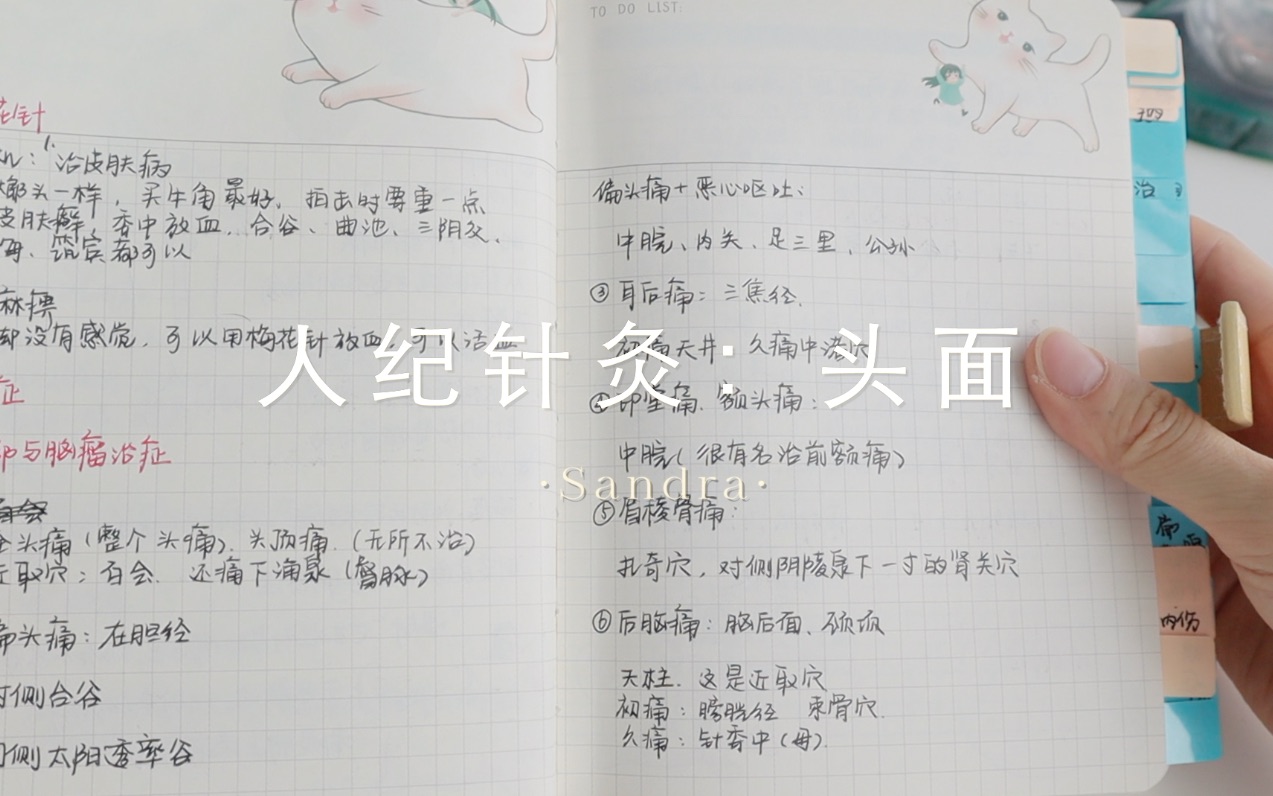 花针
治皮肤病
榔头一样，买牛角最好，拍击时要重一点
皮肤癣，委中放血，合谷、曲池、三阴交、
海、筑宾都可以
麻痹
却没有感觉，可以用梅花针放血，可以活血
症
与脑瘤治症
全头痛（整个头痛）、头顶痛（无所不治）
近取穴：百会 还痛下涌泉（肾脉）
偏头痛：在胆经
对侧合谷
侧太阳透率谷
TO DO LIST:
偏头痛+恶心呕吐：
中脘、内关、足三里、公孙
③耳后痛：三焦经.
初痛天井，久痛中渚穴
④印堂痛、额头痛：
中脘（很有名治前额痛）
⑤眉棱骨痛：
扎奇穴，对侧阴陵泉下一寸的肾关穴
⑥后脑痛：脑后面、颈项
天柱.这是近取穴
初痛：膀胱经 束骨穴.
久痛：针委中（母）.
治
内伤
人纪针灸：头面
·Sandra·